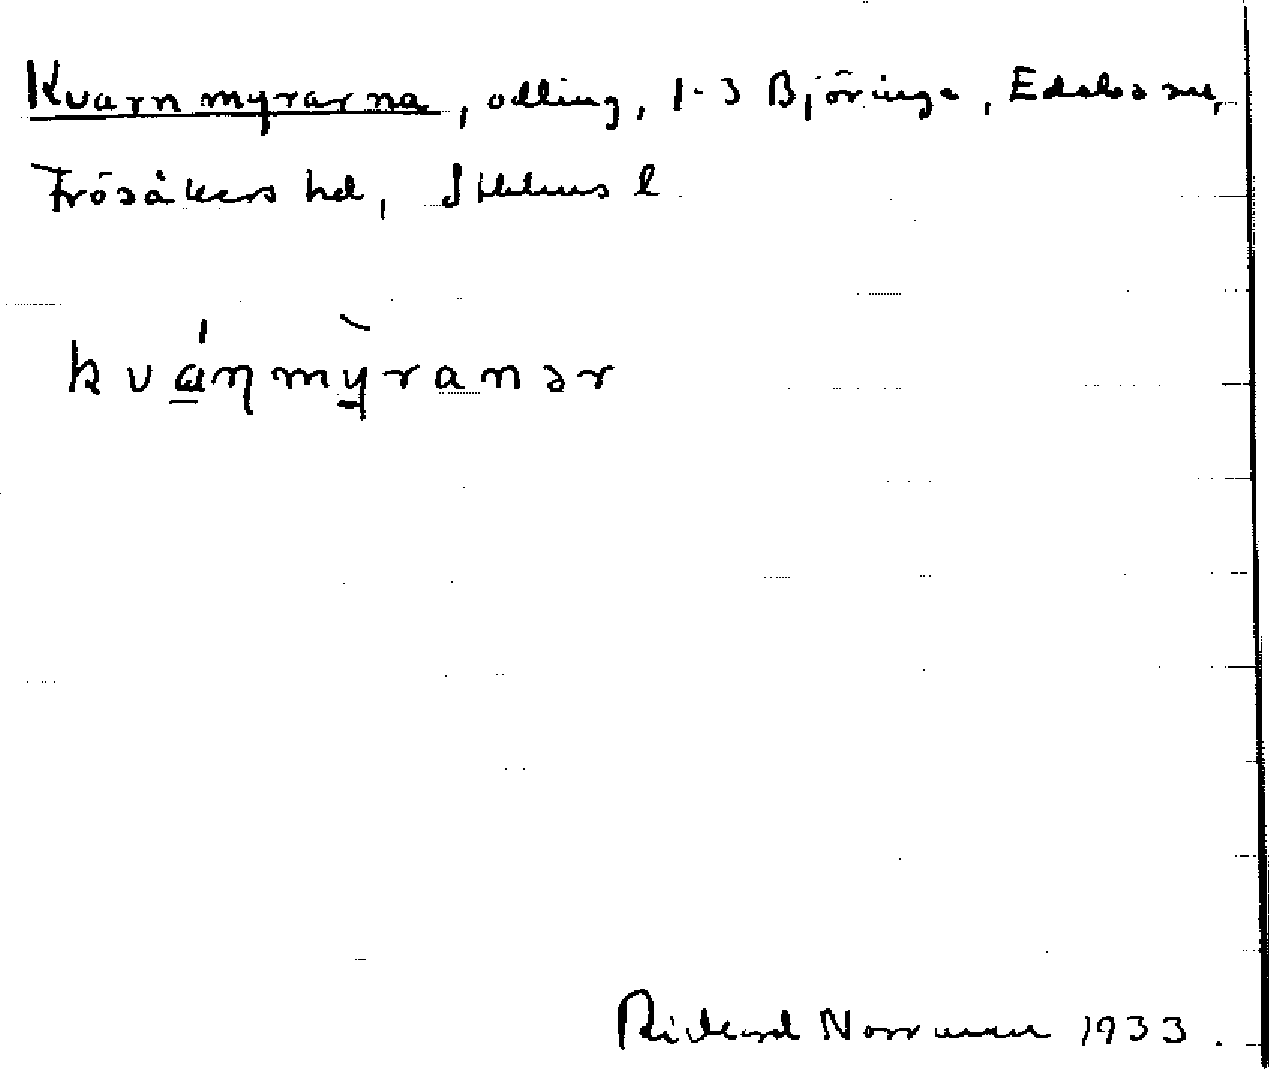 Kvarnmyrarna, odling, 1-3 Björinge, Edebo sn,
Frösåkers hd, Sthlms l
kvánmỳranər
Rickard Norrman 1933.